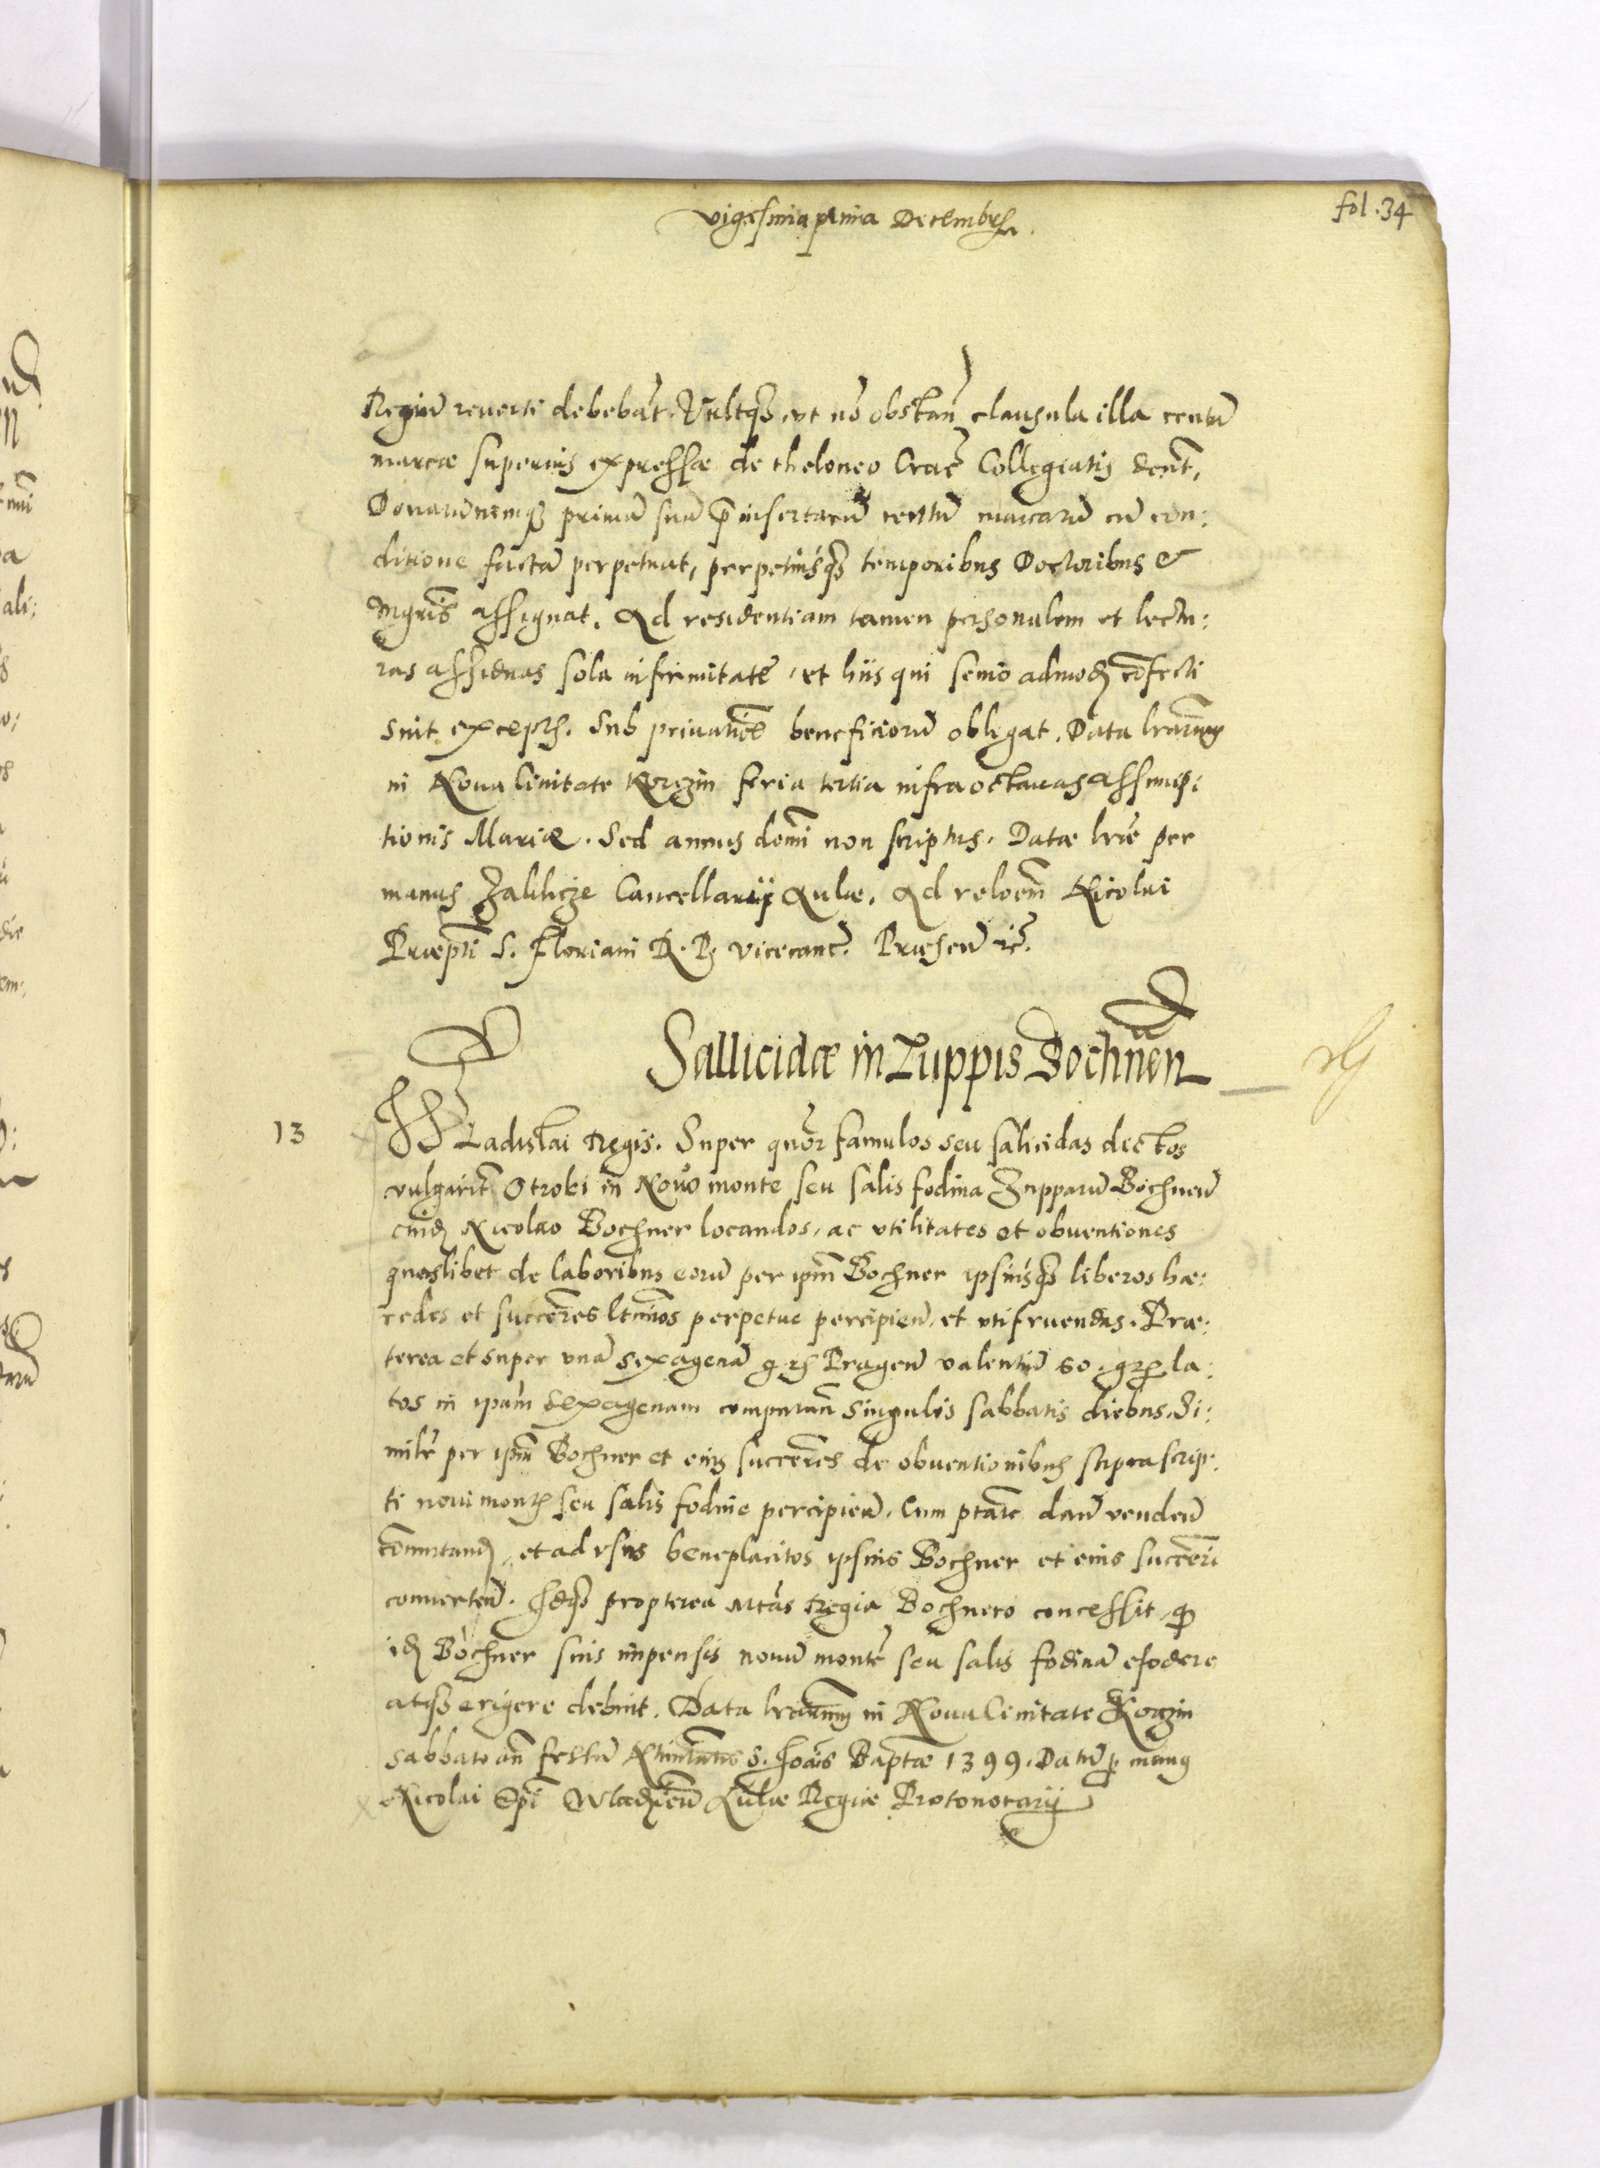 vigesima prima Decembris.
fol. 34
Regiũ reverti debebãt. Vultq̃ ut nõ obstañ clausula illa centũ
marcæ superius expressæ de theloneo Crac̃ Collegiatis denť,
Donationemq̃ primã suã p̃insertarũ centũ marcarũ cũ con:
ditione factã perpetuat, perpetuisq̃ temporibus Doctoribus &
Mgris̃ assignat. Ad residentiam tamen personalem et lectu:
ras assiduas sola infirmitate, et hiis qui senio admod̃ cõfecti
sint exceptis. Sub privatiõe beneficiorũ obligat. Data lr̃arum
in Nova Civitate Korczin feria tertia infra octavas Assump:
tionis Mariæ. Sed annus domĩ non scriptus. Datæ lr̃e per
manus Zaklicze Cancellarij Aulæ. Ad reloem̃ Nicolai
Præptĩ S. Floriani R. P. vicecanc̃. Præsen̄ etc̃.
Sallicidæ in Zuppis Bochneñ
13
Wladislai Regis. Super quõr famulos seu salicidas dictos
vulgarit̃ Otroki in Novo monte seu salis fodina Zupparũ Bochneñ
cuid̃ Nicolao Bochner locandos, ac utilitates et obventiones
quaslibet de laboribus eorũ per ipm̃ Bochner ipsiusq̃ liberos hæ:
redes et succẽres lt̃imos perpetue percipieñ, et utifruendas. Præ:
terea et super unã sexagenã gr̃ Prageñ valentiũ 60. gr̃ la:
tos in ipãm sexagenam computañ singulis sabbatis diebus, Si:
milr̃ per ipm̃ Bochner et eius succẽres de obventionibus supra scrip:
ti novi montis seu salis fodine percipieñ. Cum ptãte dañ vendeñ
cõmutand̃, et ad usus beneplacitos ipsius Bochner et eius succẽr
converteñ. Idq̃ propterea Mtãs Regia Bochnero concessit, q̃
id̃ Bochner suis impensis novũ montẽ seu salis fodinã efodere
atq̃ erigere debuit. Data lr̃arum in Nova Civitate Korczin
sabbato añ festũ Nativitatis S. Joãis Baptæ 1399. Datũ p̃ manus
Nicolai Ep̃i Wladiceñ Aulæ Regiæ Protonotarij